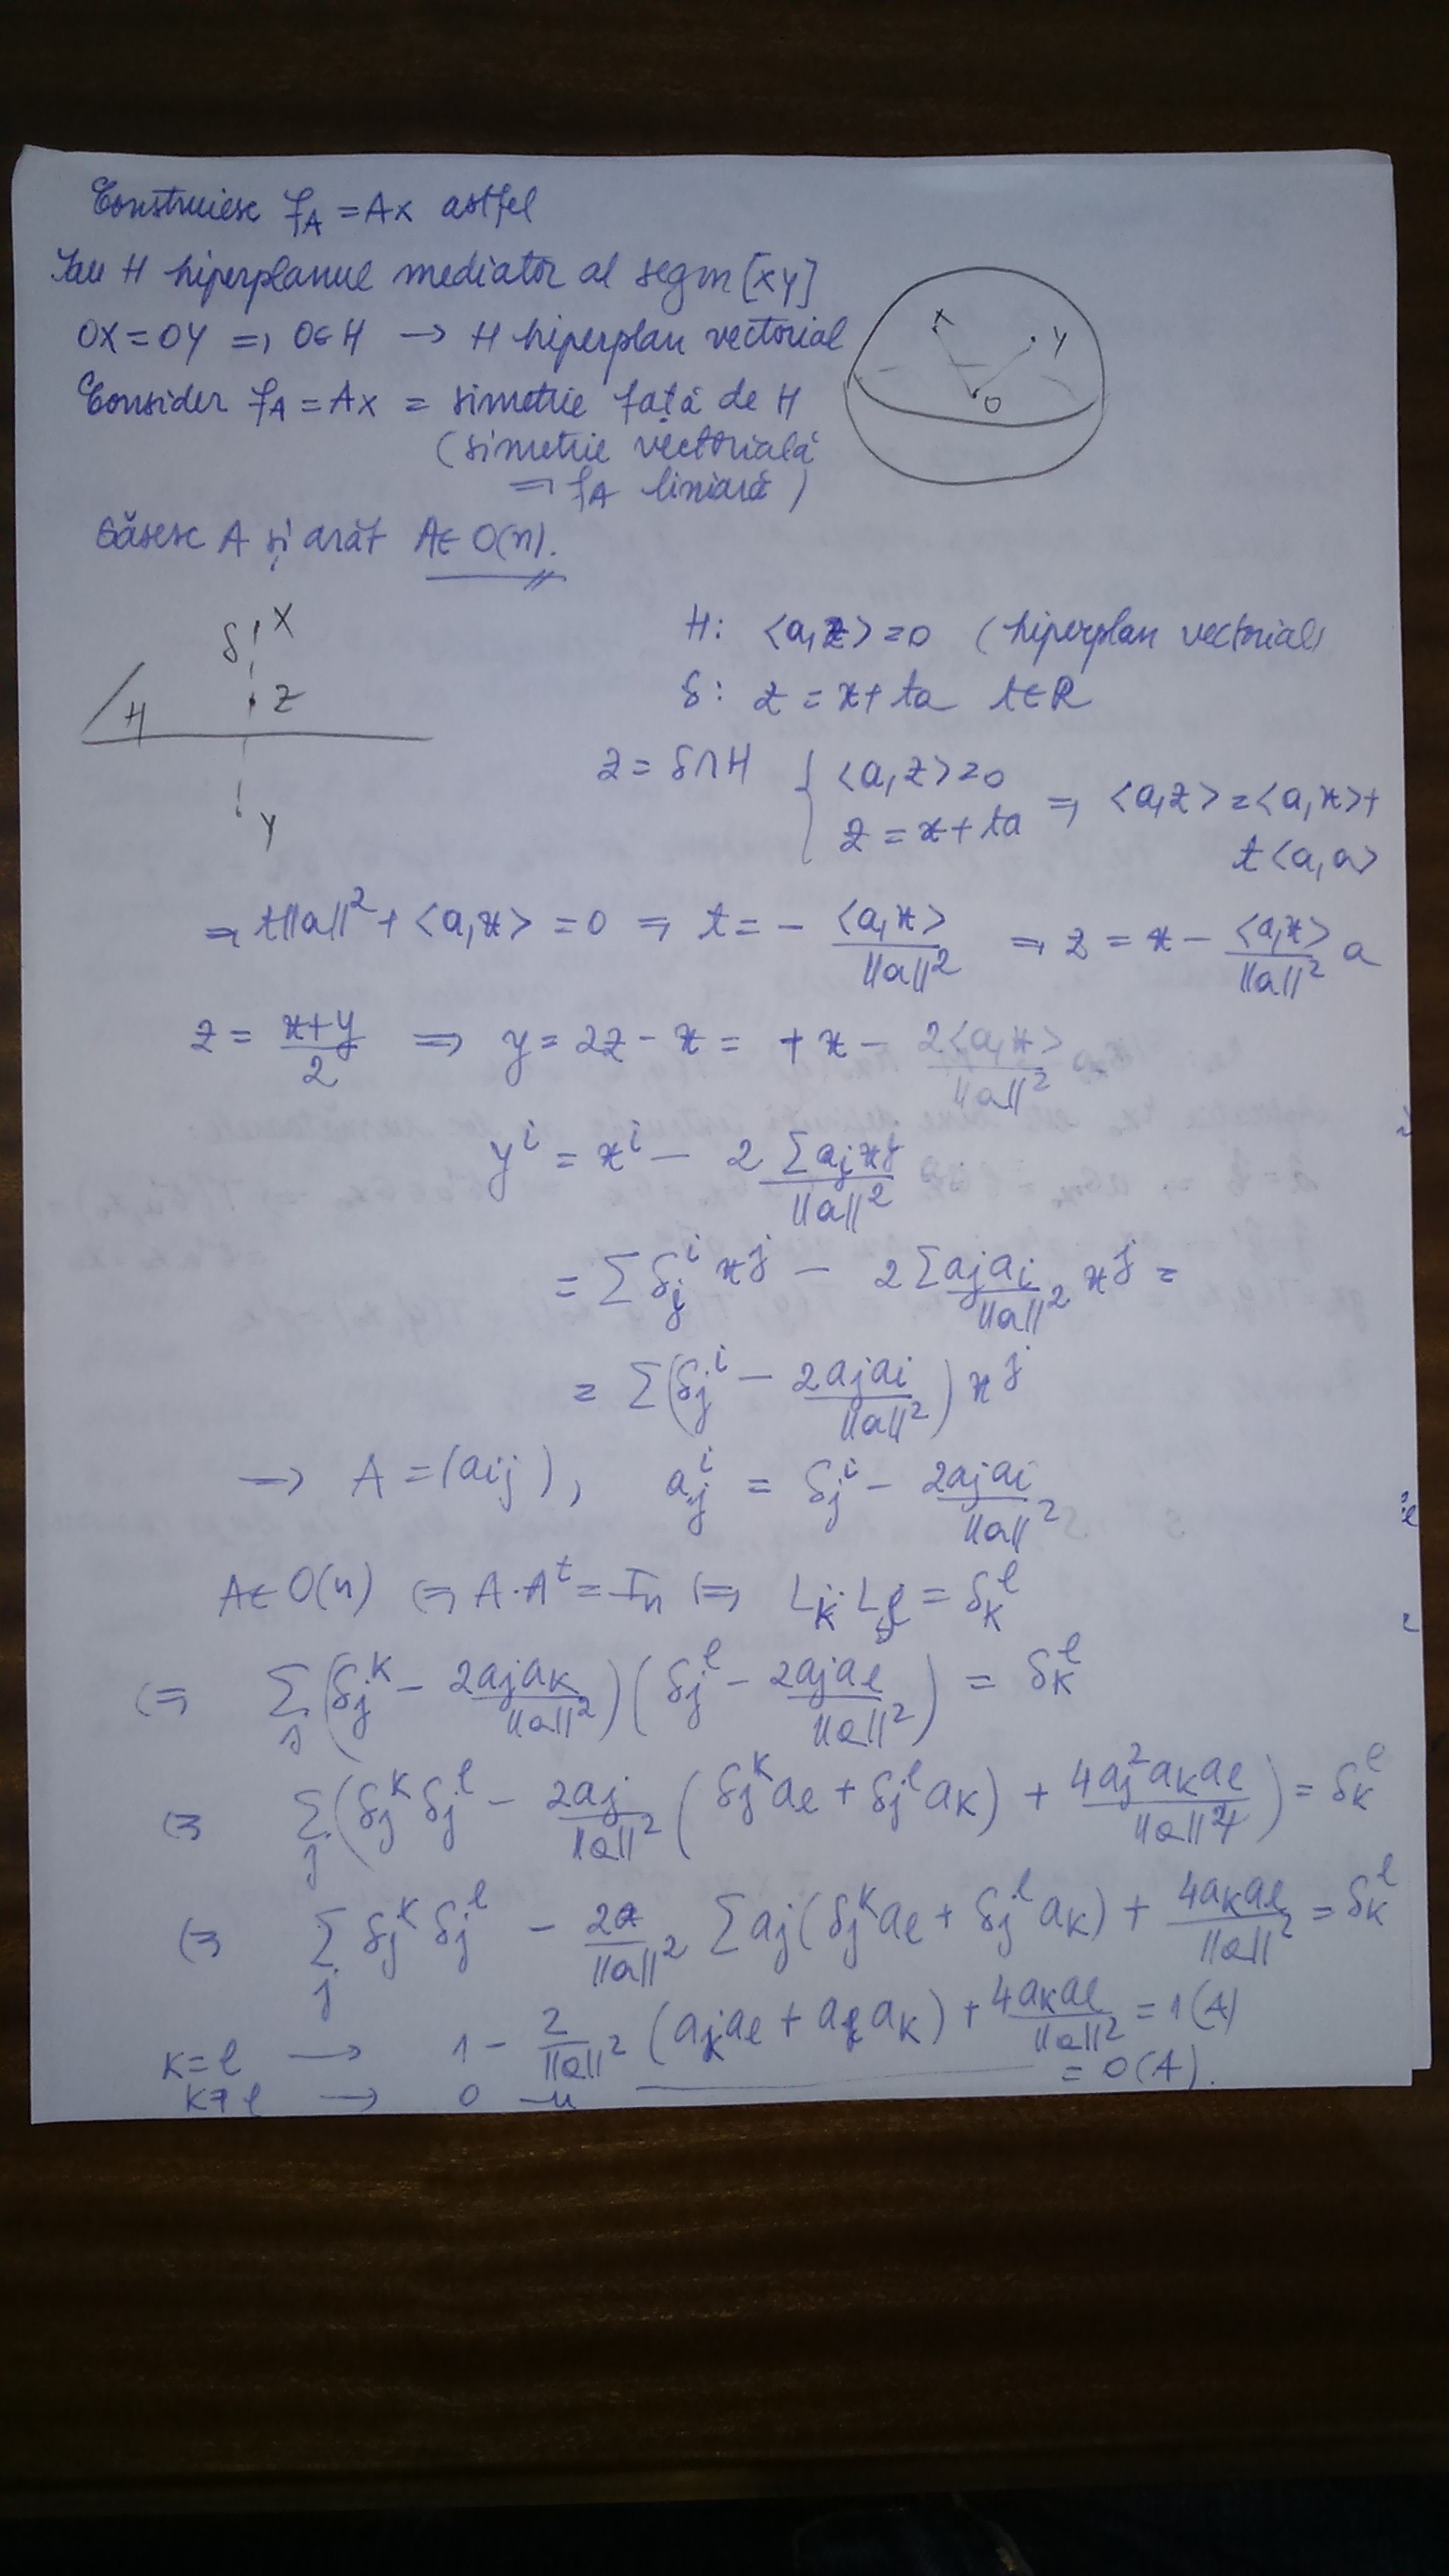 Construiesc f_A = Ax astfel
Iau H hiperplanul mediator al segm [xy]
OX = OY ⇒ O∈H → H hiperplan vectorial
Consider f_A = Ax = simetrie față de H
(simetrie vectorială
⇒ f_A liniară)
X
Y
O
Găsesc A și arăt A∈ O(n).
δ X
Z
H
Y
H: <a,z> = 0 (hiperplan vectorial)
δ: z = x + ta t∈R
z = δ∩H { <a,z> = 0
z = x + ta ⇒ <a,z> = <a,x> +
t<a,a>
⇒ t||a||² + <a,x> = 0 ⇒ t = - <a,x>/||a||² ⇒ z = x - <a,x>/||a||² a
z = (x+y)/2 ⇒ y = 2z - x = + x - 2<a,x>/||a||²
y^i = x^i - 2 Σ a_j x^j/||a||²
= Σ δ_j^i x^j - 2 Σ a_j a_i/||a||² x^j =
= Σ (δ_j^i - 2a_j a_i/||a||²) x^j
→ A = (a_ij), a_j^i = δ_j^i - 2a_j a_i/||a||²
A∈ O(n) ⇔ A·A^t = I_n ⇔ L_k · L_l = δ_k^l
⇔ Σ_j (δ_j^k - 2a_j a_k/||a||²)(δ_j^l - 2a_j a_l/||a||²) = δ_k^l
⇔ Σ_j (δ_j^k δ_j^l - 2a_j/||a||² (δ_j^k a_l + δ_j^l a_k) + 4a_j² a_k a_l/||a||⁴) = δ_k^l
⇔ Σ_j δ_j^k δ_j^l - 2/||a||² Σ a_j (δ_j^k a_l + δ_j^l a_k) + 4a_k a_l/||a||² = δ_k^l
k=l → 1 - 2/||a||² (a_k a_l + a_l a_k) + 4a_k a_l/||a||² = 1 (A)
k≠l → 0 —〃— = 0 (A).